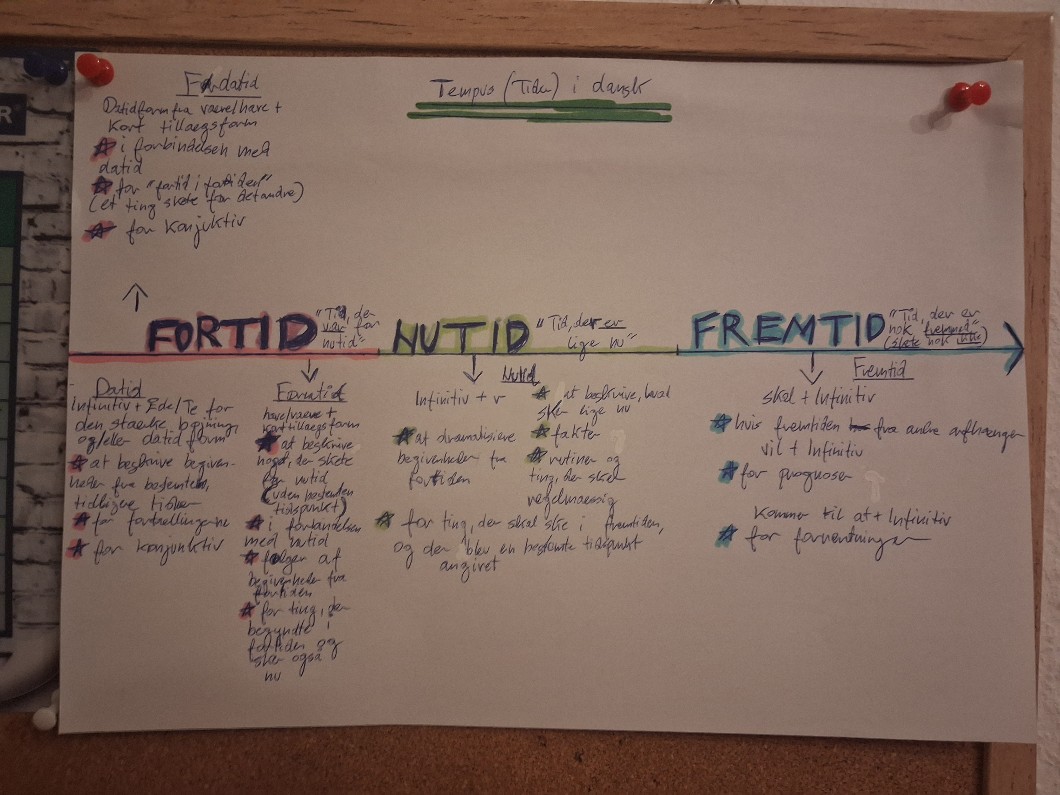 Tempus (Tider) i dansk
Førdatid
Datidform fra være/have +
kort tillaegsform
i forbindelsen med
datid
for "fortid i fortiden"
(et ting skete før det andre)
for Konjuktiv
R
FORTID
"Tid, der
var før
nutid"
NUTID
"Tid, der er
lige nu"
FREMTID
"Tid, der er
nok fremmed"
(skete nok ikke)
Datid
Infinitiv + Ede/Te for
den staerke bøjning,
og/eller datid form
at beskrive begiven-
heder fra bestemten,
tidligere tider
for fortaellingerne
for konjunktiv
Førnutid
have/vaere +
kort tillaegsform
at beskrive
noget, der skete
før nutid
(uden bestemten
tidspunkt)
i forbindelsen
med nutid
følger af
begivenheder fra
fortiden
for ting, der
begyndte i
fortiden og
sker også
nu
Nutid
Infinitiv + r
at dramatisiere
begivenheder fra
fortiden
for ting, der skal ske i fremtiden,
og der blev en bestemte tidspunkt
angivet
at beskrive, hvad
sker lige nu
fakter
rutiner og
ting, der skal
regelmaessig
Fremtid
skal + Infinitiv
hvis fremtiden fra andre aufhaenger
vil + Infinitiv
for prognoser
Kommer til at + Infinitiv
for forventninger